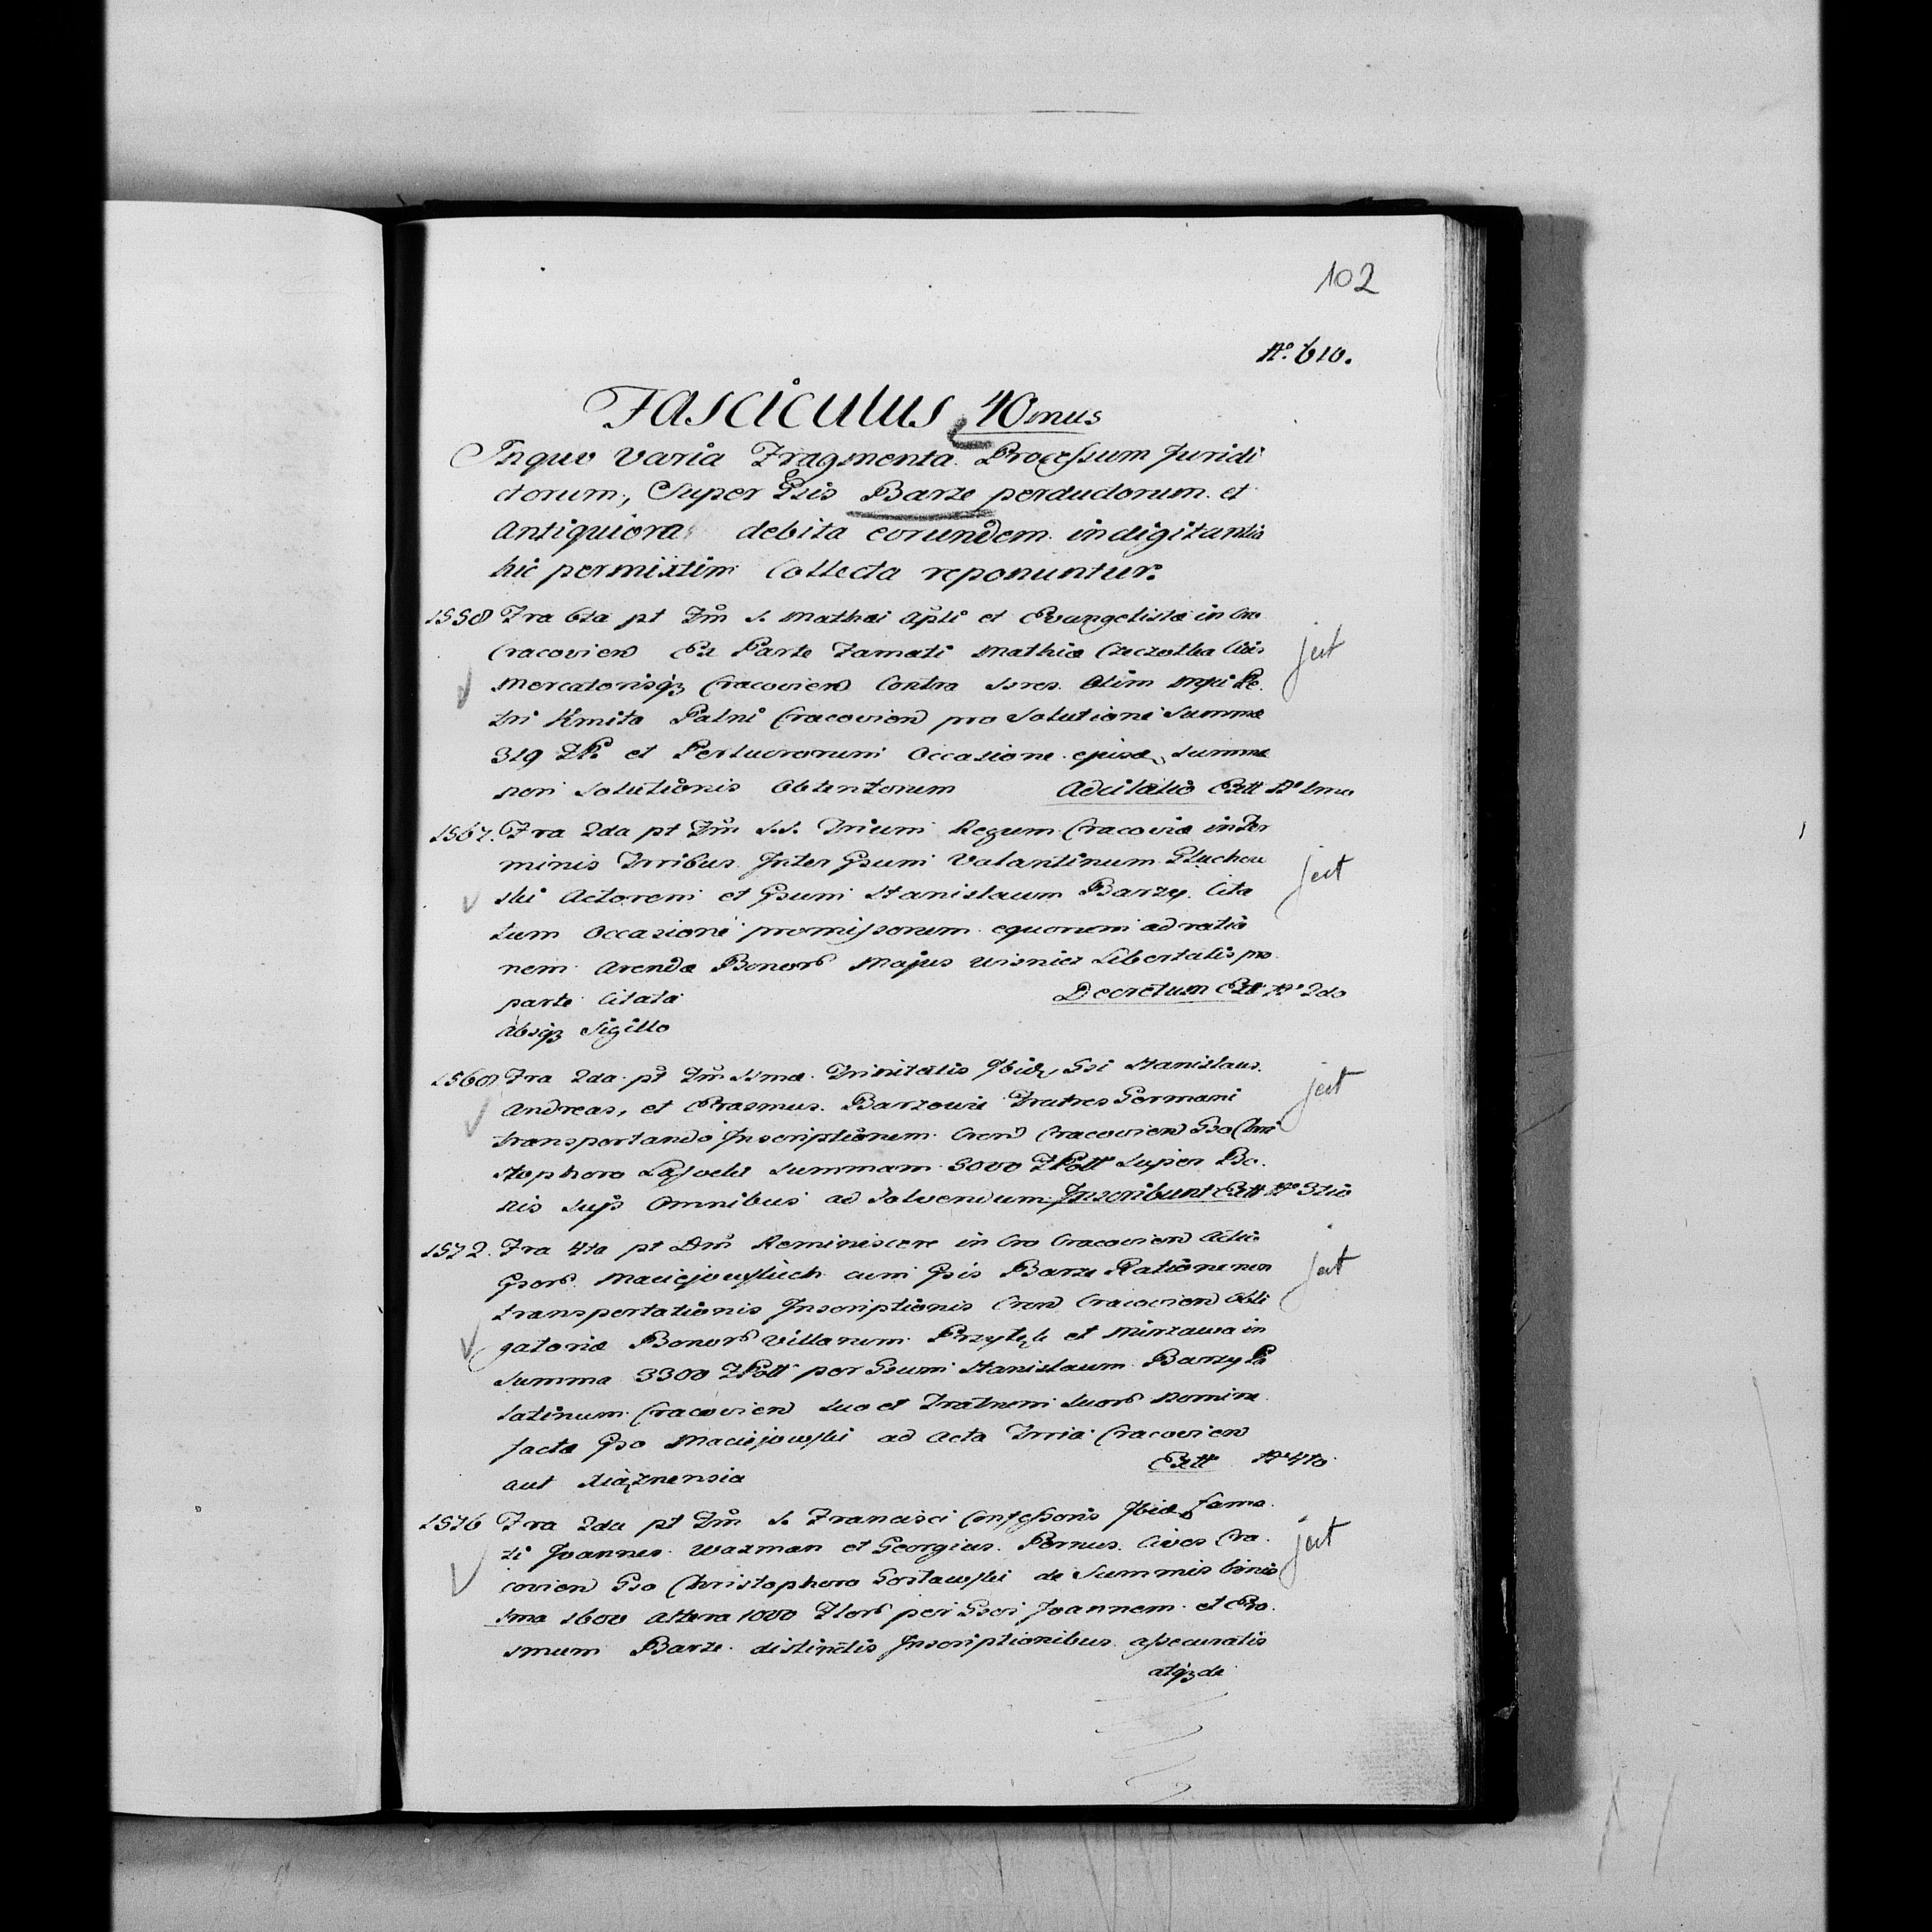 102
No. 610.
Fasciculus 40mus
In quo Varia Fragmenta Processum Juridi
ctorum, Super Gsis Barze perductorum et
Antiquiora debita eorundem indigitantia
hic permixtim Collecta reponuntur.
1558 Fra 6ta pt Fm S. Mathæi Apli et Evangelistæ in Cro
Cracovien Ex Parte Famati Mathiæ Czeczotka Civis
jest
Mercatorisq3 Cracovien Contra Sres Olim Mgci Pe
tri Kmita Palni Cracovien pro Solutione Summæ
319 FP. et Perlucrorum Occasione ejusd Summæ
non Solutionis Obtentorum Adcitatio Extt No 1mo
1567. Fra 2da pt Fm S.S. Trium Regum Cracoviæ in Ter
minis Trribus Inter Gsum Valantinum Gluchow
ski Actorem et Gsum Stanislaum Barzy Cita
jest
tum Occasione promissorum equorum ad ratio
nem Arendæ Bonors Majus Wisnicz Libertatis pro
parte Citata Decretum Extt No 2do
Absq3 Sigillo
1568 Fra 2da pt Fm SSmæ Trinitatis Ibid Gsi Stanislaus
jest
Andreas, et Erasmus Barzowie Fratres Germani
transportando Inscriptionem Cren Cracovien Gso Chri
stophoro Lasocki Summam 3000 FPoll Super Bo
nis Suis Omnibus ad Solvendum Inscribunt Extt No 3tio
1572. Fra 4ta pt Dm Reminiscere in Cro Cracovien Actio
Gsors Maciejowskich cum Gsis Barze Ratione non
jest
transportationis Inscriptionis Cren Cracovien Obli
gatoriæ Bonors Villarum Przytyk et Mirzawa in
Summa 3300 FPoll per Gsum Stanislaum Barzy Pa
latinum Cracovien Suo et Fratrum Suors Nomine
factæ Gso Maciejowski ad Acta Trria Cracovien
aut Xiążnensia Extt No 4to
1576 Fra 2da pt Fm S. Francisci Confessoris Ibid fama
ti Joannes Waxman et Georgius Pernus Cives Cra
jest
covien Gso Christophoro Gostawski de Summis binis
1ma 1600 altera 1000 Flors per Gsos Joannem et Era
smum Barze distinctis Inscriptionibus assecuratis
atq3 de